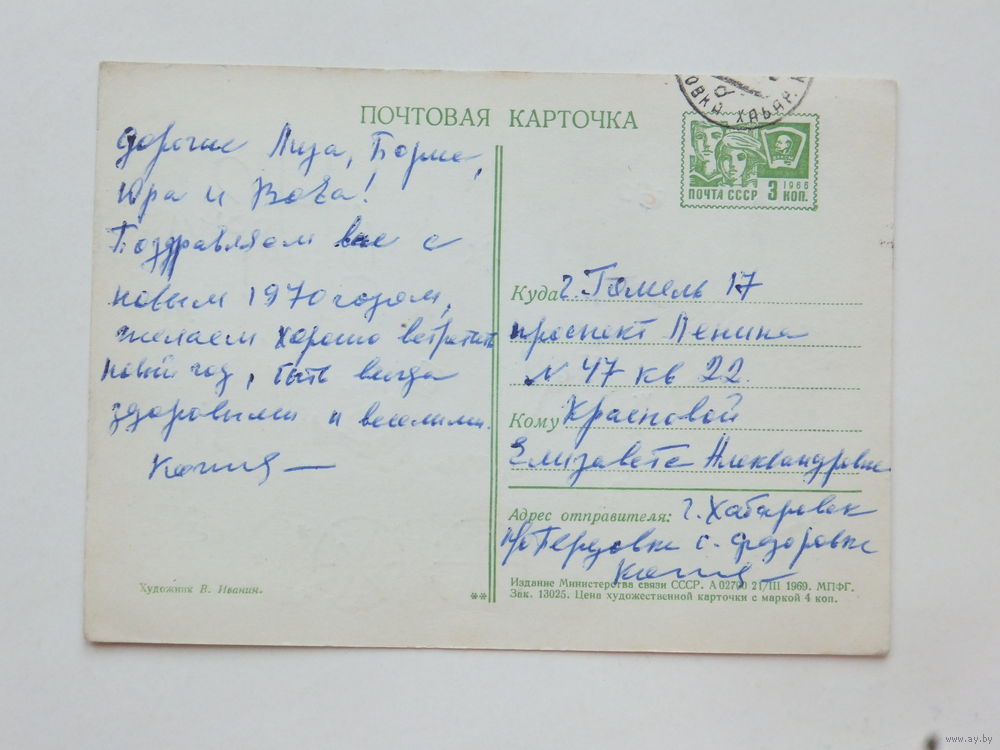 ПОЧТОВАЯ КАРТОЧКА
Дорогие Лиза, Боря,
Юра и Вова!
Поздравляем вас с
новым 1970 годом,
желаем хорошо встретить
новый год, быть всегда
здоровыми и веселыми.
ОВКА ХАБАР.
1966
ПОЧТА СССР 3 КОП.
Куда г. Гомель 17
проспект Ленина
№ 47 кв 22.
Кому Красновой
Елизавете Александровне
Адрес отправителя: г. Хабаровск
с. Федоровка
Издание Министерства связи СССР. А 02700 21/III 1969. МПФГ.
Зак. 13025. Цена художественной карточки с маркой 4 коп.
Художник В. Иванин.
**
www.ay.by